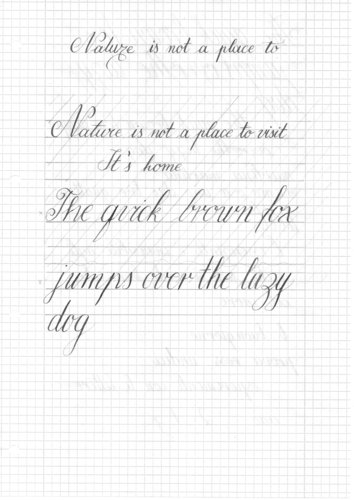 Nature is not a place to
Nature is not a place to visit
It's home
The quick brown fox
jumps over the lazy
dog